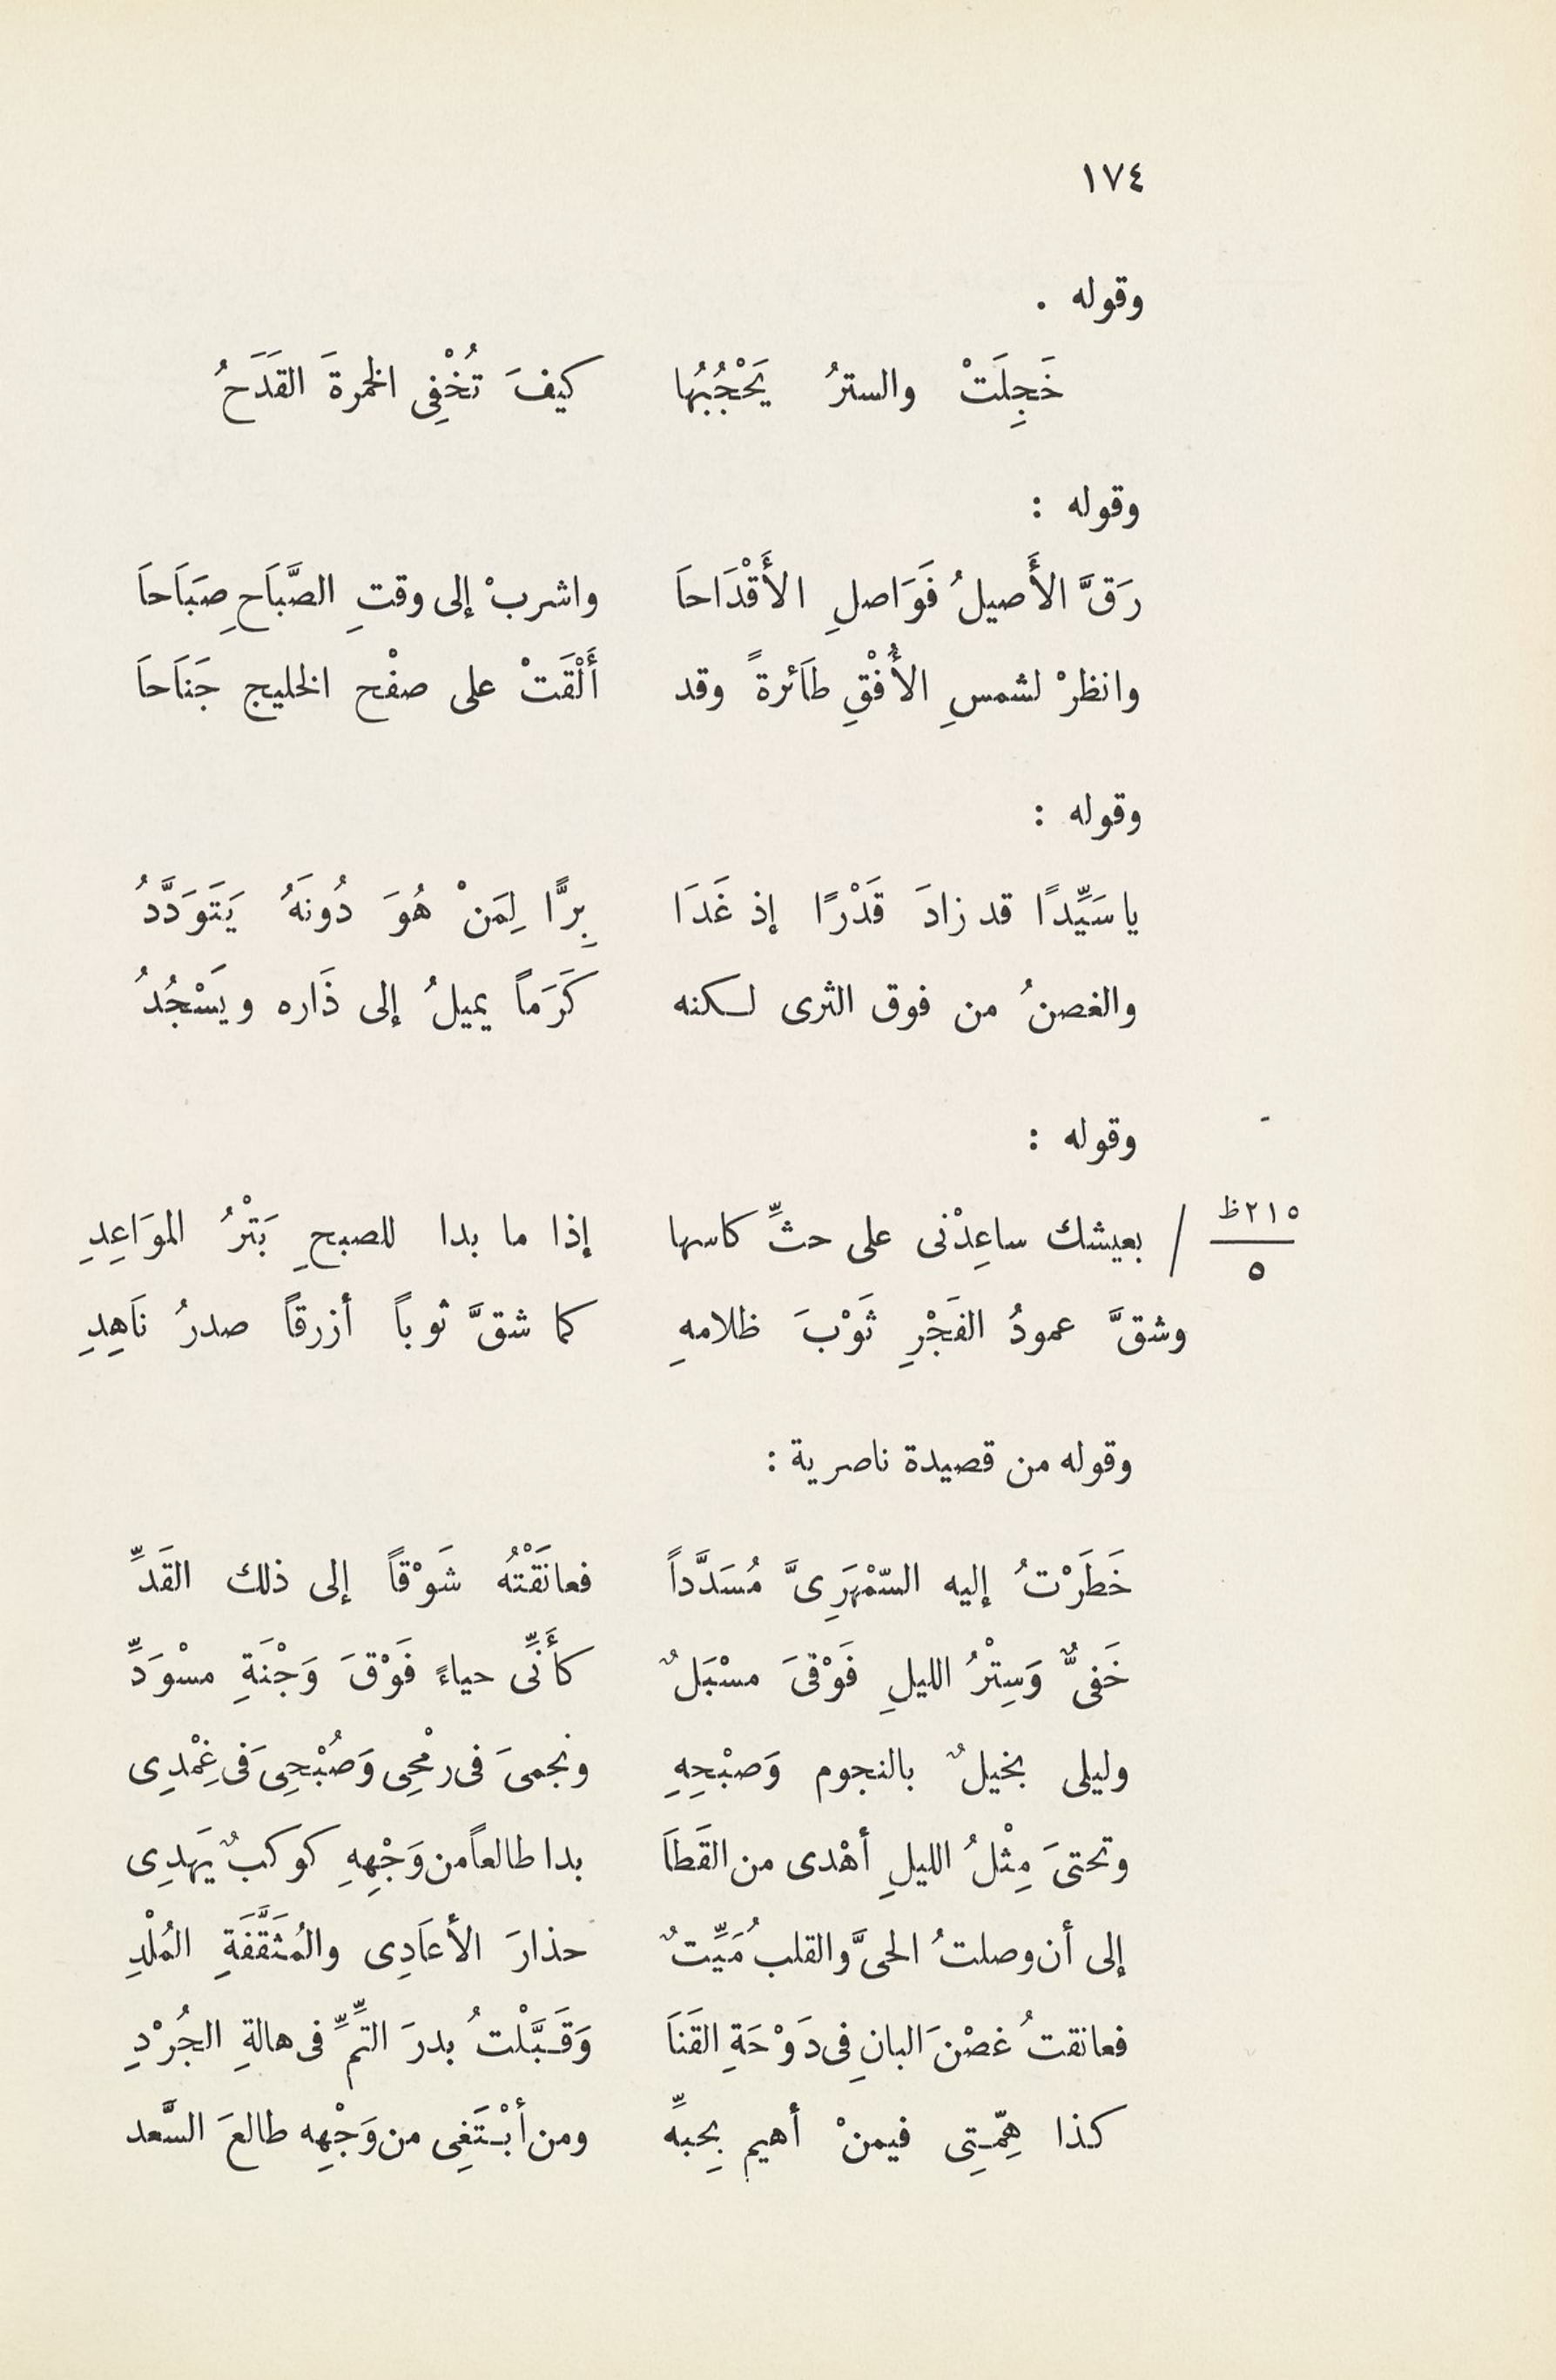 ١٧٤
وقوله .
خَجِلَتْ والسترُ يَحْجُبُها كيفَ تُخْفِى الخمرةَ القَدَحُ
وقوله :
رَقَّ الأَصيلُ فَوَاصلِ الأَقْدَاحَا واشربْ إلى وقتِ الصَّبَاَحِ صَبَاَحاَ
وانظرْ لشمسِ الأُفْقِ طاَئرةً وقد أَلْقَتْ على صفْح الخليج جَنَاَحاَ
وقوله :
يا سَيِّدًا قد زادَ قَدْرًا إذ غَدَا بِرًّا لِمَنْ هُوَ دُونَهُ يَتَوَدَّدُ
والغصنُ من فوق الثرى لكنه كَرَماً يميلُ إلى ذَاره ويَسْجُدُ
وقوله :
٢١٥ظ / ٥ بعيشك ساعِدْنى على حثِّ كاسها إذا ما بدا للصبحِ بَتْرُ الموَاعِدِ
وشقَّ عمودُ الفَجْرِ ثَوْبَ ظلامهِ كما شقَّ ثوباً أزرقاً صدرُ نَاهِدِ
وقوله من قصيدة ناصرية :
خَطَرْتُ إليه السّمْهَرِىَّ مُسَدَّداً فعانَقْتُه شَوْقاً إلى ذلك القَدِّ
خَفىٌّ وَسِتْرُ الليلِ فَوْقىَ مسْبَلٌ كأَنِّى حياءً فَوْقَ وَجْنَةِ مسْوَدِّ
وليلى بخيلٌ بالنجوم وَصبْحِهِ ونجمىَ فى رمْحِى وَصُبْحِىَ فى غِمْدِى
وتحتىَ مِثْلُ الليلِ أهْدى من القَطَاَ بدا طالعاً من وَجْهِهِ كوكبٌ يَهدِى
إلى أن وصلتُ الحىَّ والقلبُ مَيِّتٌ حذارَ الأعاَدِى والمُثَقَّفَةِ المُلْدِ
فعانقتُ غصْنَ البانِ فِى دَوْحَةِ القَنَاَ وَقَبَّلْتُ بدرَ التِّمِّ فى هالةِ الجُرْدِ
كذا هِمّتِى فيمنْ أهيم بِحبهِّ ومن أبْتَغِى من وَجْهِه طالعَ السَّعد